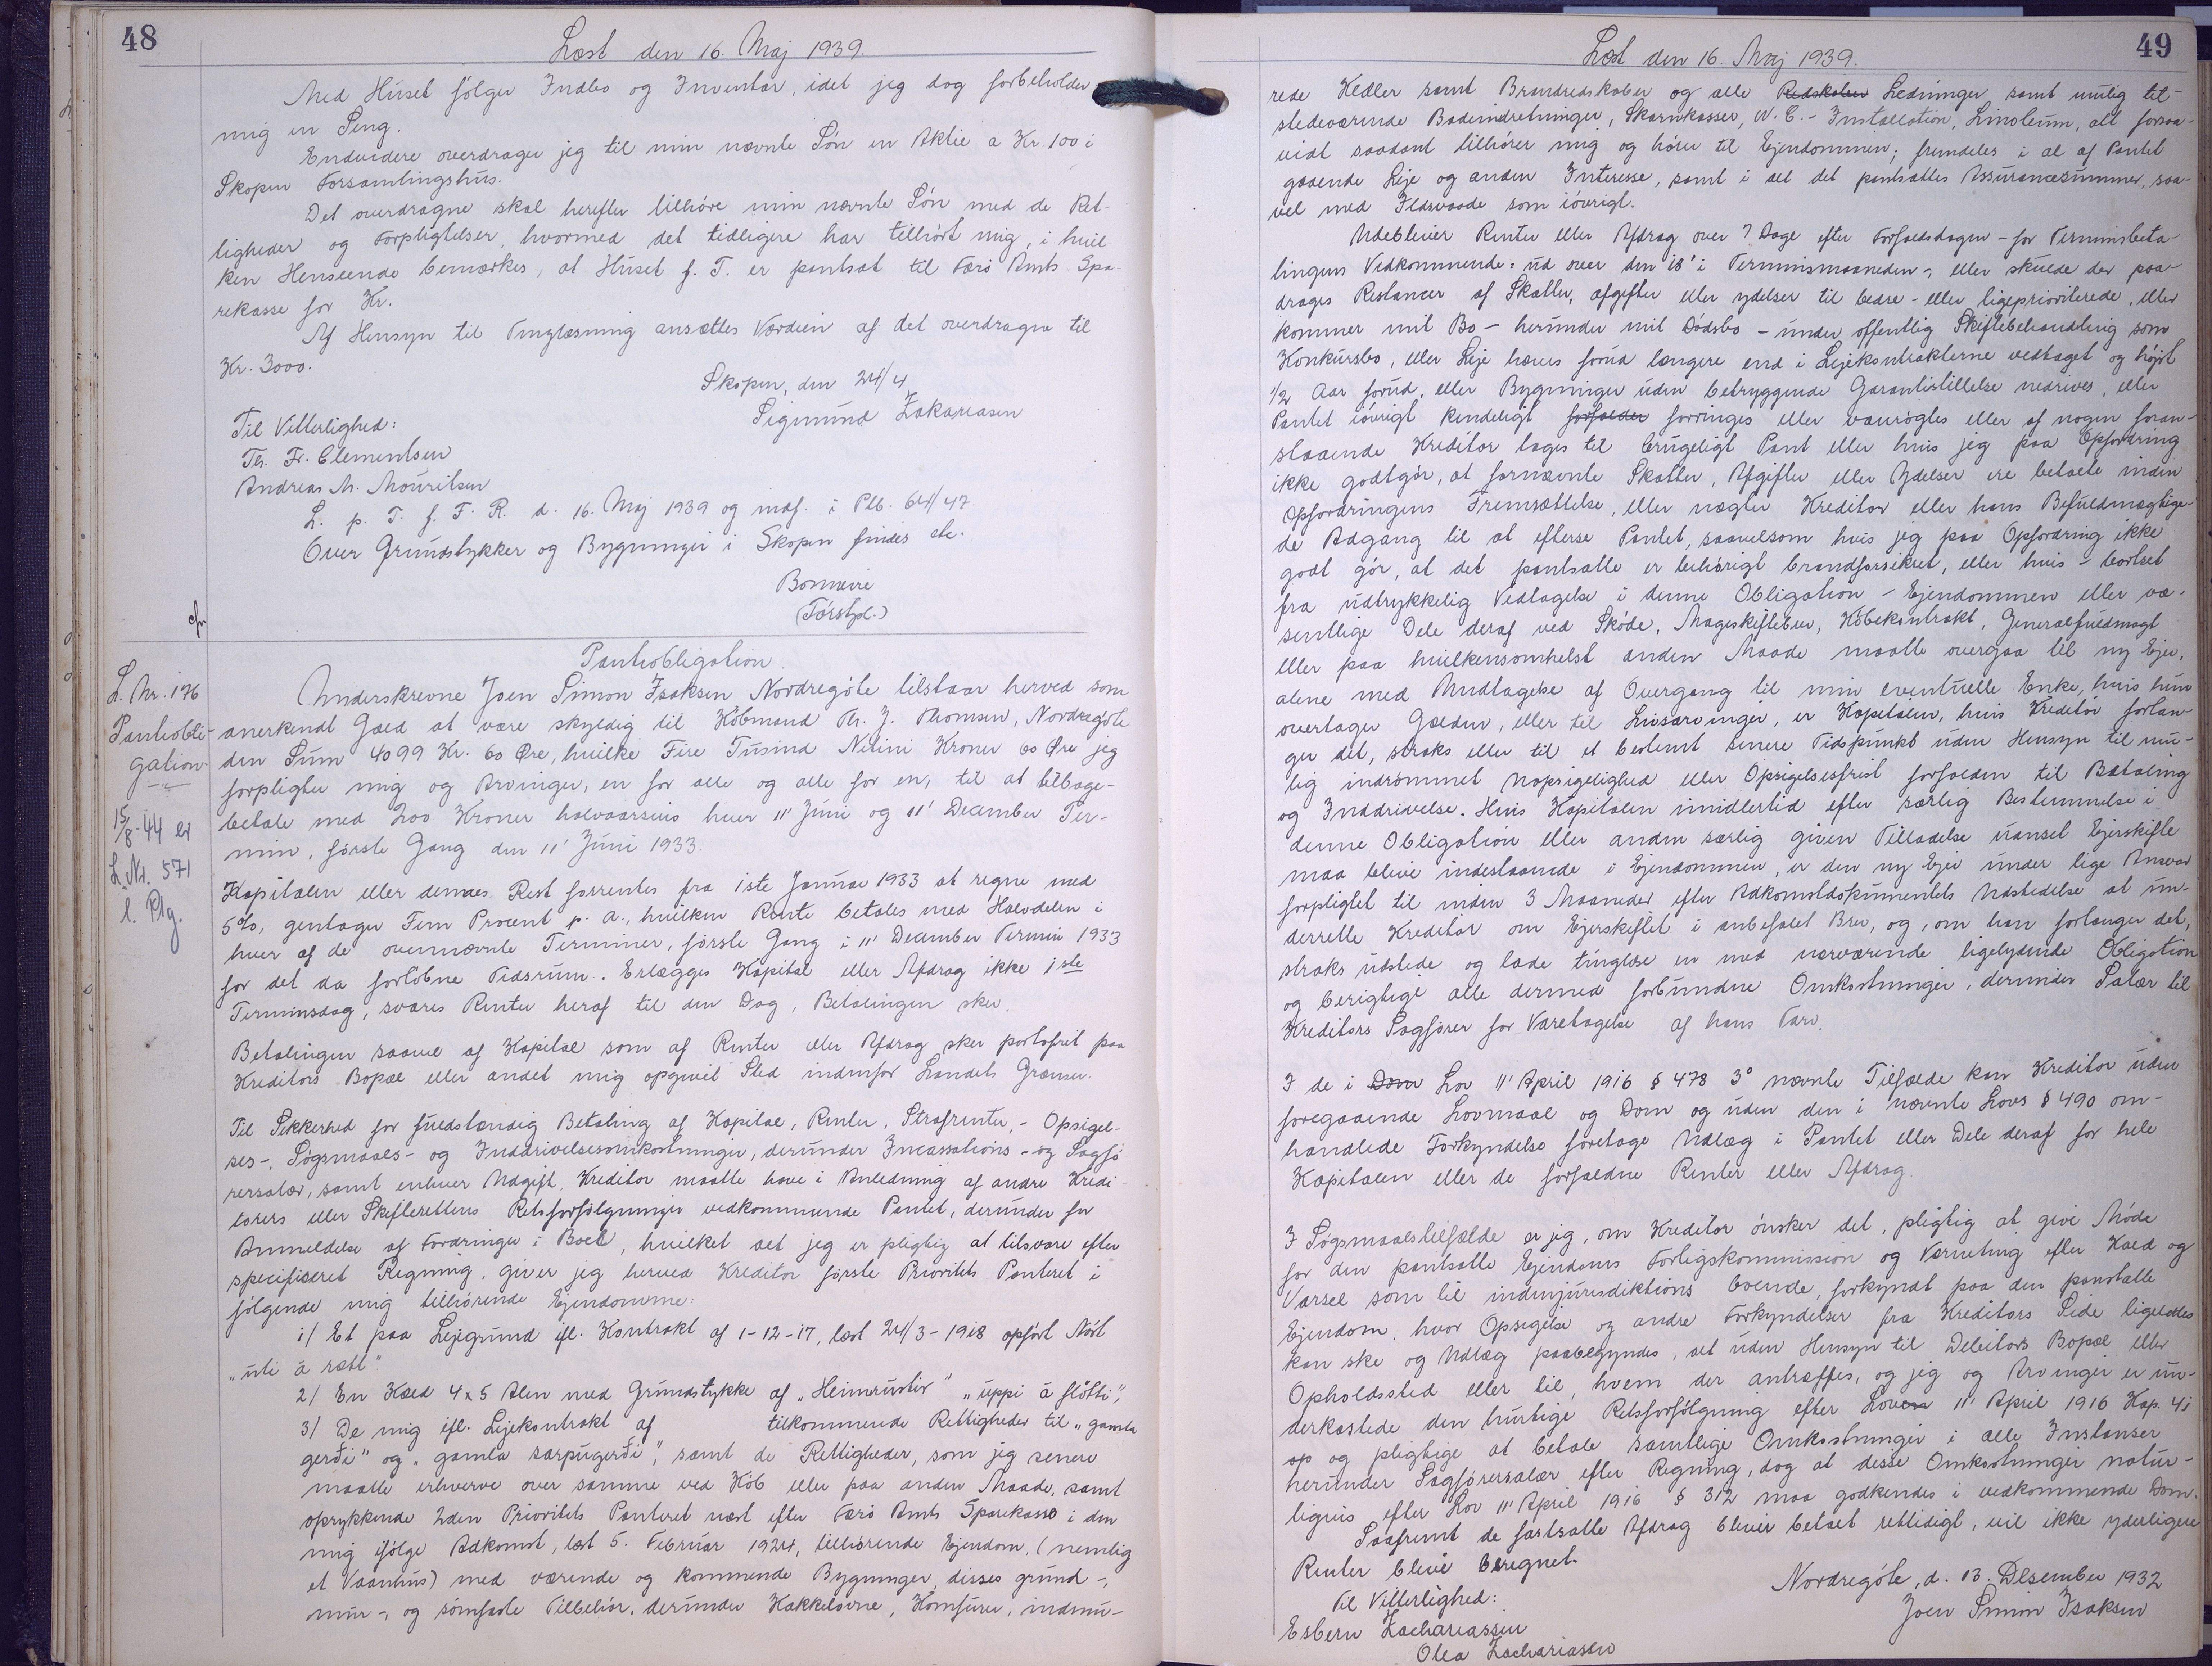 48
Læst den 16. Maj 1939.
Med Húset fólger Indbo og Inventar, idet jeg dog forbeholder
mig en Seng.
Endvidere overdrager jeg til min nævnte Són en Aktie a Kr. 100 i
Skopun Forsamlingshús.
Det overdragne skal herefter tilhóre min nævnte Són med de Ret-
ligheder og Forpligtelser, hvormed det tidligere har tilhórt mig, i hvil-
ken Henseende bemærkes, at Húset f. T. er pantsat til Færó Amts Spa-
rekasse for Kr.
Af Hensyn til Tinglæsning ansættes Værdien af det overdragne til
Kr. 3000.
Skopun, den 24/4
Sigmund Zakariasen
Til Vitterlighed:
Th. Fr. Clementsen
Andreas M. Mouritsen
L. p. T. f. F. R. d. 16. Maj 1939 og indf. i Plb. 64/47
Over Grundstykker og Bygninger i Skopun findes etc.
Bomævre
(Fórstpl.)
cfr
L. Nr. 176
Pantobli-
gation
15/8-44 er
L. Nr. 571
l. Plg.
Pantobligation.
Underskrevne Joen Simon Isaksen Nordregóte tilstaar herved som
anerkendt Gæld at være skyldig til Kóbmand Th. J. Thomsen, Nordregóte
den Sum 4099 Kr. 60 Øre, hvilke Fire Túsind Nitini Kroner 60 Øre jeg
forpligter mig og Arvinger, en for alle og alle for en, til at tilbage-
betale med 200 Kroner halvaarsvis hver 11' Júni og 11' December Ter-
min, fórste Gang den 11' Júni 1933.
Kapitalen eller dennes Rest forrentes fra 1ste Januar 1933 at regne med
5%, gentager Fem Procent p. a., hvilken Rente betales med Halvdelen i
hver af de ovennævnte Terminer, fórste Gang i 11' December Termin 1933
for det da forlóbne Tidsrúm. Erlægges Kapital eller Afdrag ikke 1ste
Terminsdag, svares Renter heraf til den Dag, Betalingen sker.
Betalingen saavel af Kapital som af Renter eller Afdrag sker portofrit paa
Kreditors Bopæl eller andet mig opgivet Sted indenfor Landets Grænser.
Til Sikkerhed for fúldstændig Betaling af Kapital, Renter, Strafrenter, - Opsigel-
ses-, Sógsmaals- og Inddrivelsesomkostninger, derúnder Incassations- og Sagfó
rersalær, samt enhver Udgift, Kreditor maatte have i Anledning af andre Kredi-
torers eller Skifterettens Retsforfólgninger vedkommende Pantet, derúnder for
Anmeldelse af Fordringer i Boet, hvilket alt jeg er pligtig at tilsvare efter
specificeret Regning, giver jeg herved Kreditor fórste Prioritets Panteret i
fólgende mig tilhórende Ejendomme:
1/ Et paa Lejegrúnd ifl. Kontrakt af 1-12-17, læst 24/3-1918 opfórt Nóst
„úti á rætt".
2/ En Kæld 4 x 5 Alen med Grúndstykke af „Heimrústir" „úppi á flótti",
3/ De mig ifl. Lejekontrakt af tilkommende Rettigheder til „gamla
gerði" og „gamla sarpúgerði", samt de Rettigheder, som jeg senere
maatte erhverve over samme ved Kób eller paa anden Maade, samt
oprykkende 2den Prioritets Panteret næst efter Færó Amts Sparekasse i den
mig ifólge Adkomst, læst 5. Februar 1924, tilhórende Ejendom, (nemlig
et Vaanhús) med værende og kommende Bygninger, disses grúnd-,
múr-, og sómfaste Tilbehór, derúnder Kakkelovne, Komfúrer, indmú-
49
Læst den 16. Maj 1939.
rede Kedler samt Brandredskaber og alle Redskaber Ledninger samt múlig til-
stedeværende Badeindretninger, Skarnkasser, W. C.- Installation, Linoleum, alt forsaa-
vidt saadant tilhórer mig og hórer til Ejendommen; fremdeles i al af Pantet
gaaende Leje og anden Interesse, samt i alt det pantsattes Assurancesummer, saa-
vel med Ildsvaade som ióvrigt.
Udebliver Renter eller Afdrag over 7 Dage efter Forfaldsdagen - for Terminsbeta-
lingens Vedkommende: úd over den 18' i Terminsmaaneden -, eller skúlde der paa-
drages Restancer af Skatter, afgifter eller ydelser til bedre- eller ligeprioriterede, eller
kommer mit Bo - herúnder mit Dódsbo - únder offentlig Skiftebehandling som
Konkúrsbo, eller Leje hæves forúd længere end i Lejekontrakterne vedtaget og hójst
1/2 Aar forúd, eller Bygninger úden betryggende Garantistillelse nedrives, eller
Pantet ióvrigt kendeligt forfalder forringes eller vanrógtes eller af nogen foran-
staaende Kreditor tages til brúgeligt Pant eller hvis jeg paa Opfordring
ikke godtgór, at fornævnte Skatter, Afgifter eller Ydelser ere betalte inden
Opfordringens Fremsættelse, eller nægter Kreditor eller hans Befúldmægtige-
de Adgang til at efterse Pantet, saavelsom hvis jeg paa Opfordring ikke
godt gór, at det pantsatte er behórigt brandforsikret, eller hvis - bortset
fra údtrykkelig Vedtagelse i denne Obligation - Ejendommen eller væ-
sentlige Dele deraf ved Skóde, Mageskiftebrev, Kóbekontrakt, Generalfúldmagt
eller paa hvilkensomhelst anden Maade maatte overgaa til ny Ejer,
alene med Undtagelse af Overgang til min eventúelle Enke, hvis hún
overtager Gælden, eller til Livsarvinger, er Kapitalen, hvis Kreditor forlan-
ger det, straks eller til et bestemt senere Tidspúnkt úden Hensyn til mú-
lig indrómmet Uopsigelighed eller Opsigelsesfrist forfalden til Betaling
og Inddrivelse. Hvis Kapitalen imidlertid efter særlig Bestemmelse i
denne Obligation eller anden særlig given Tilladelse úanset Ejerskifte
maa blive indestaaende i Ejendommen, er den ny Ejer únder lige Ansvar
forpligtet til inden 3 Maaneder efter Adkomstdokúmentets Udstedelse at ún-
derrette Kreditor om Ejerskiftet i anbefalet Brev, og, om han forlanger det,
straks údstede og lade tinglæse en med nærværende ligelydende Obligation
og berigtige alle dermed forbúndne Omkostninger, derúnder Salær til
Kreditors Sagfórer for Varetagelse af hans Tarv.
I de i Dom Lov 11' April 1916 § 478 3° nævnte Tilfælde kan Kreditor úden
foregaaende Lovmaal og Dom og úden den i nævnte Lovs § 490 om-
handlede Forkyndelse foretage Udlæg i Pantet eller Dele deraf for hele
Kapitalen eller de forfaldne Renter eller Afdrag.
I Sógsmaalstilfælde er jeg, om Kreditor ónsker det, pligtig at give Móde
for den pantsatte Ejendoms Forligskommission og Værneting efter Kald og
Varsel som til indenjúrisdiktions boende, forkyndt paa den pantsatte
Ejendom, hvor Opsigelse og andre Forkyndelser fra Kreditors Side ligeledes
kan ske og Udlæg paabegyndes, alt úden Hensyn til Debitors Bopæl eller
Opholdssted eller til, hvem der antræffes, og jeg og Arvinger er ún-
derkastede den húrtige Retsforfólgning efter Loven 11' April 1916 Kap. 41
op og pligtige at betale samtlige Omkostninger i alle Instanser
herúnder Sagfórersalær efter Regning, dog at disse Omkostninger natúr-
ligvis efter Lov 11' April 1916 § 312 maa godkendes i vedkommende Dom.
Saafremt de fastsatte Afdrag bliver betalt rettidigt, vil ikke yderligere
Renter blive beregnet.
Nordregóte, d. 13. Desember 1932
Joen Simon Isaksen
Til Vitterlighed:
Esbern Zachariassen
Olea Zachariasen